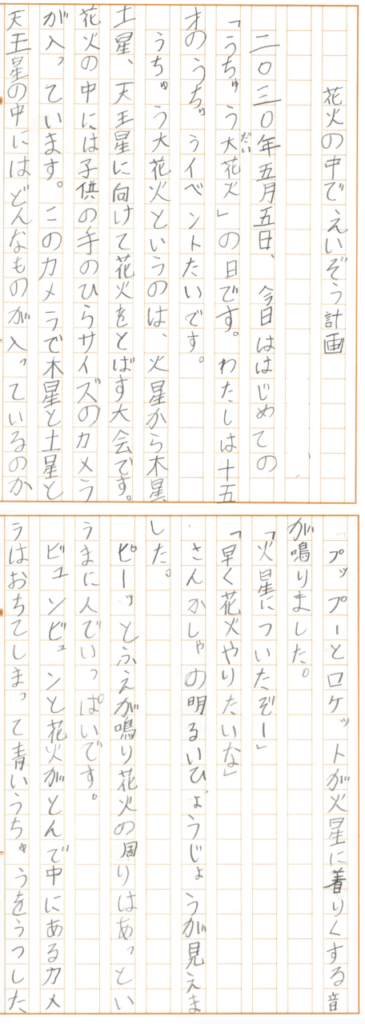 花火の中でえいぞう計画
二〇三〇年五月五日、今日ははじめての
「うちゅう大花火」の日です。わたしは十五
だい
才のうちゅうイベントたいです。
うちゅう大花火というのは、火星から木星
土星、天王星に向けて花火をとばす大会です。
花火の中には子供の手のひらサイズのカメラ
が入っています。このカメラで木星と土星と
天王星の中にはどんなものが入っているのか
プップーとロケットが火星に着りくする音
が鳴りました。
「火星についたぞー」
「早く花火やりたいな」
さんかしゃの明るいひょうじょうが見えま
した。
ピーッとふえが鳴り花火の周りはあっとい
うまに人でいっぱいです。
ビュンビュンと花火がとんで中にあるカメ
うはおちてしまって青いうちゅうをうつした